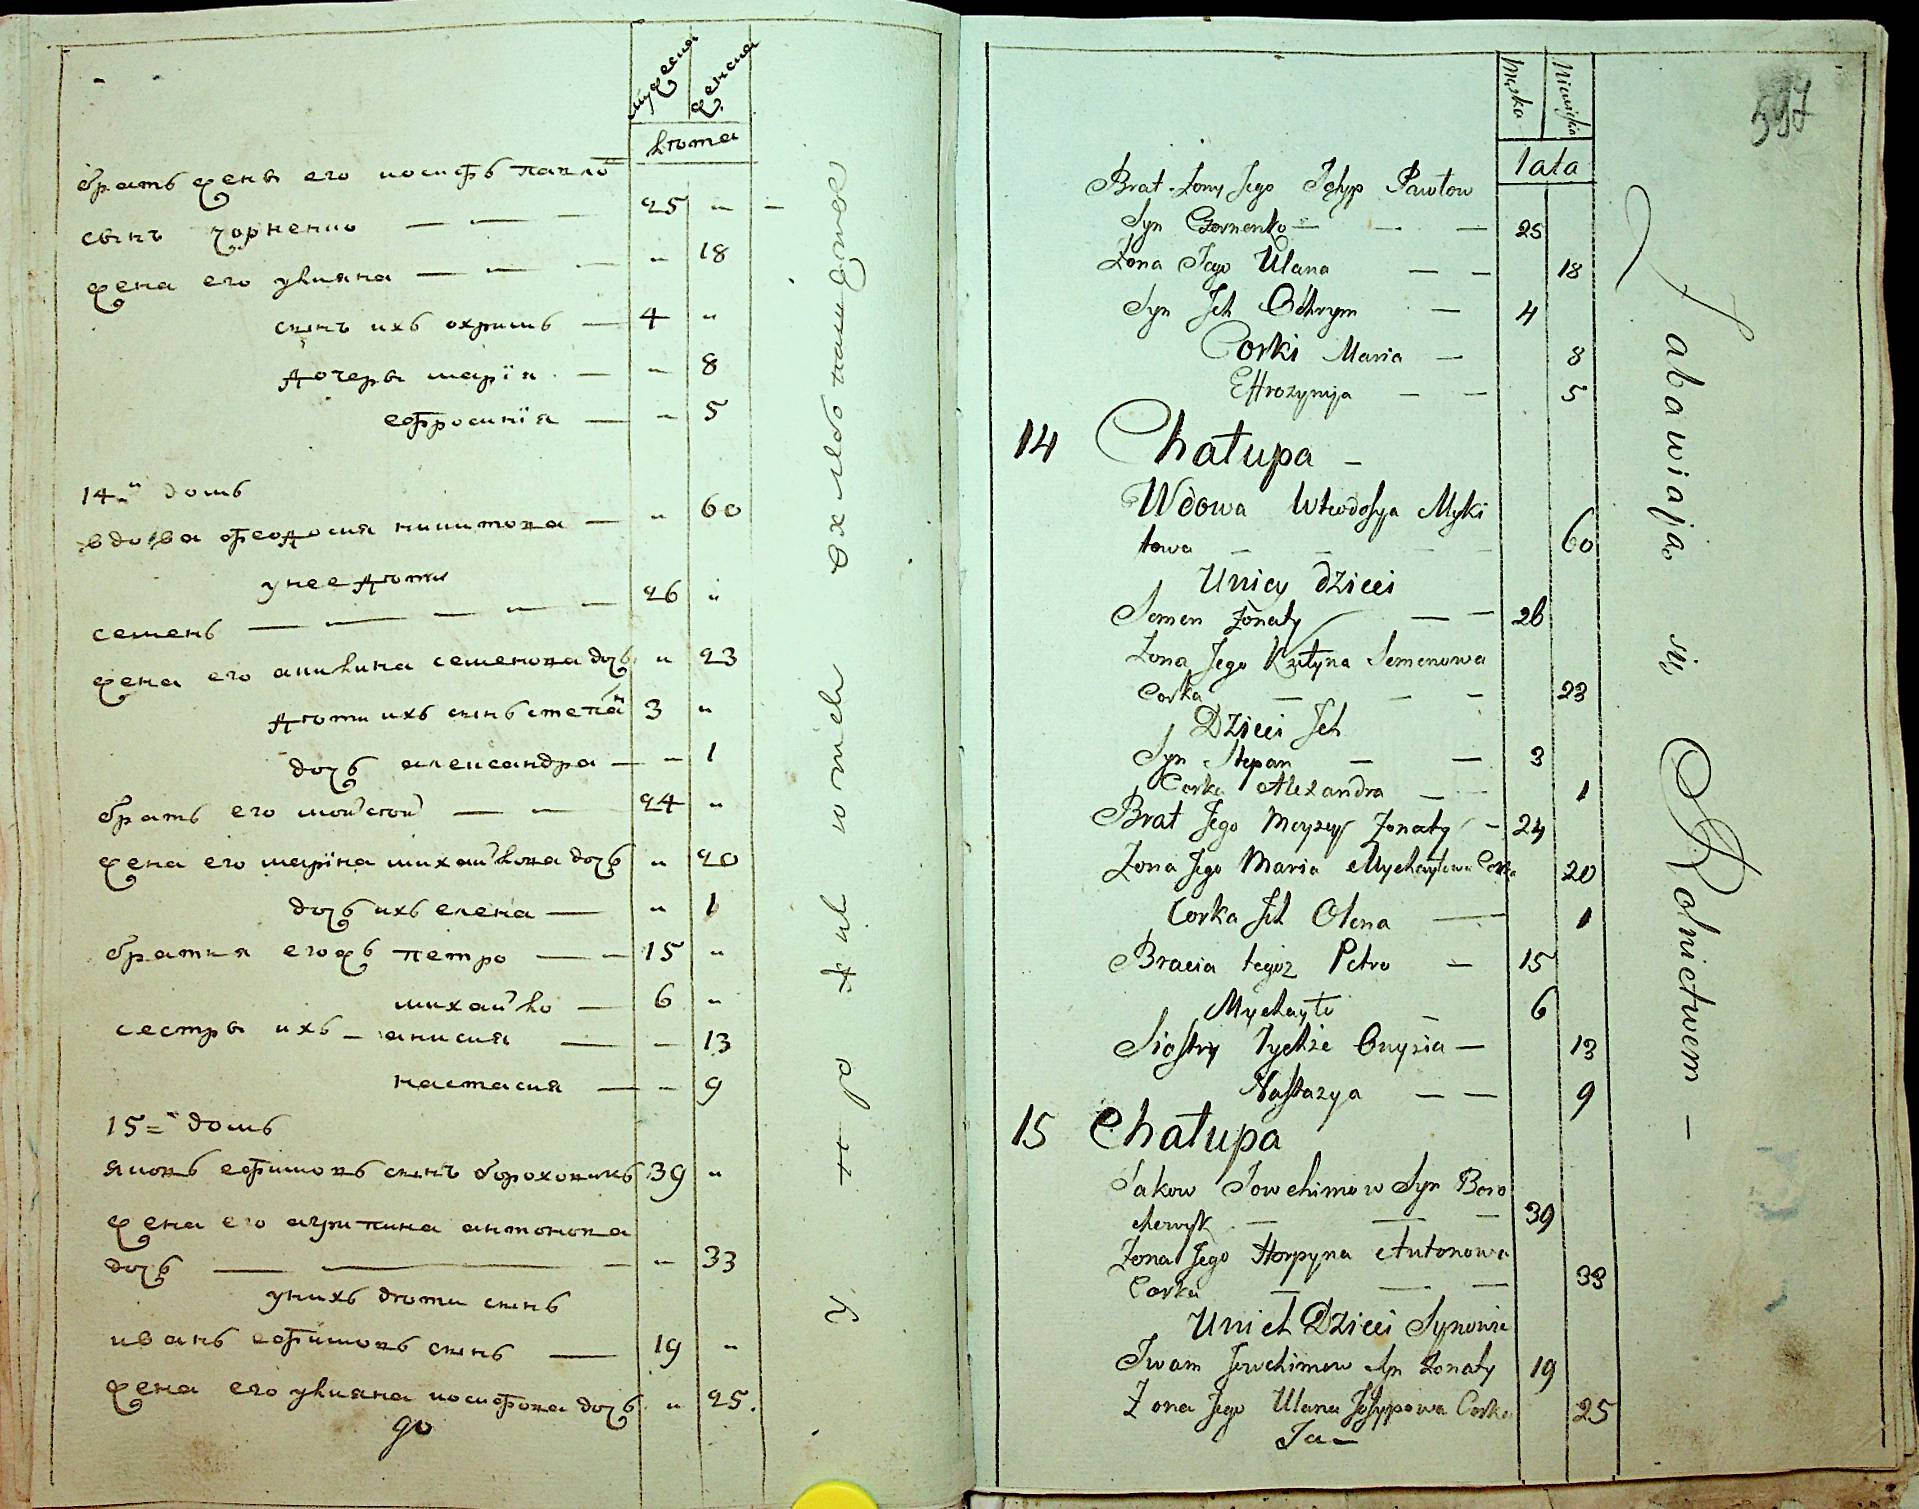 мужеска женска
лѣта
братъ жены его иосифъ павло
сынъ чорненко — — — 25 „ —
жена его улияна — — — „ 18
сынъ ихъ охримъ — 4 „
дочеры марїя — „ 8
ефросинїя — „ 5
14-й домъ
вдова феодосия никитова — „ 60
у нее дѣти
семенъ — — — — — 26 „
жена его акилина семенова дочь „ 23
дѣти ихъ сынъ степан 3 „
дочь александра — „ 1
братъ его мойсей — — 24 „
жена его марїна михайлова дочь „ 20
дочь ихъ елена — „ 1
братия егожъ петро — — 15 „
михайло — 6 „
сестры ихъ — анисия — „ 13
настасия — „ 9
15-й домъ
яковъ ефимовъ сынъ бороховикъ 39 „
жена его агрипина антонова
дочь — — — „ 33
у нихъ дѣти сынъ
иванъ ефимовъ сынъ — 19 „
жена его улияна иосифова дочь „ 25.
до
597
Męska Niewieścia
lata
Brat Żony Jego Josyp Pawłow
Syn Czornenko — — — 25
Żona Jego Ulana — — 18
Syn Ich Ochrym — 4
Corki Maria — 8
Effrozynija — — 5
14 Chałupa —
Wdowa Teodosya Myki
towa — — — — 60
U nicy dzieci
Semen Żonaty — — 26
Żona Jego Semenowa
Corka — — — 23
Dzieci Ich
Syn Stepan — — 3
Corka Alexandra — — 1
Brat Jego Moyzey Żonaty — 24
Żona Jego Maria Mychayłowa Corka 20
Corka Ich Olena — 1
Bracia tegoż Petro — 15
Mychayło — 6
Siostry Tychże Onyzia — 13
Nastazya — — 9
15 Chałupa
Jakow Jowchimow Syn Boro
chowyk — — — 39
Żona Jego Horpyna Antonowa
Corka — — — 33
U nich Dzieci Synowie
Iwan Jowchimow Syn Żonaty 19
Żona Jego Ulana Josypowa Corka 25
Ja —
Zabawiają się Rolnictwem —